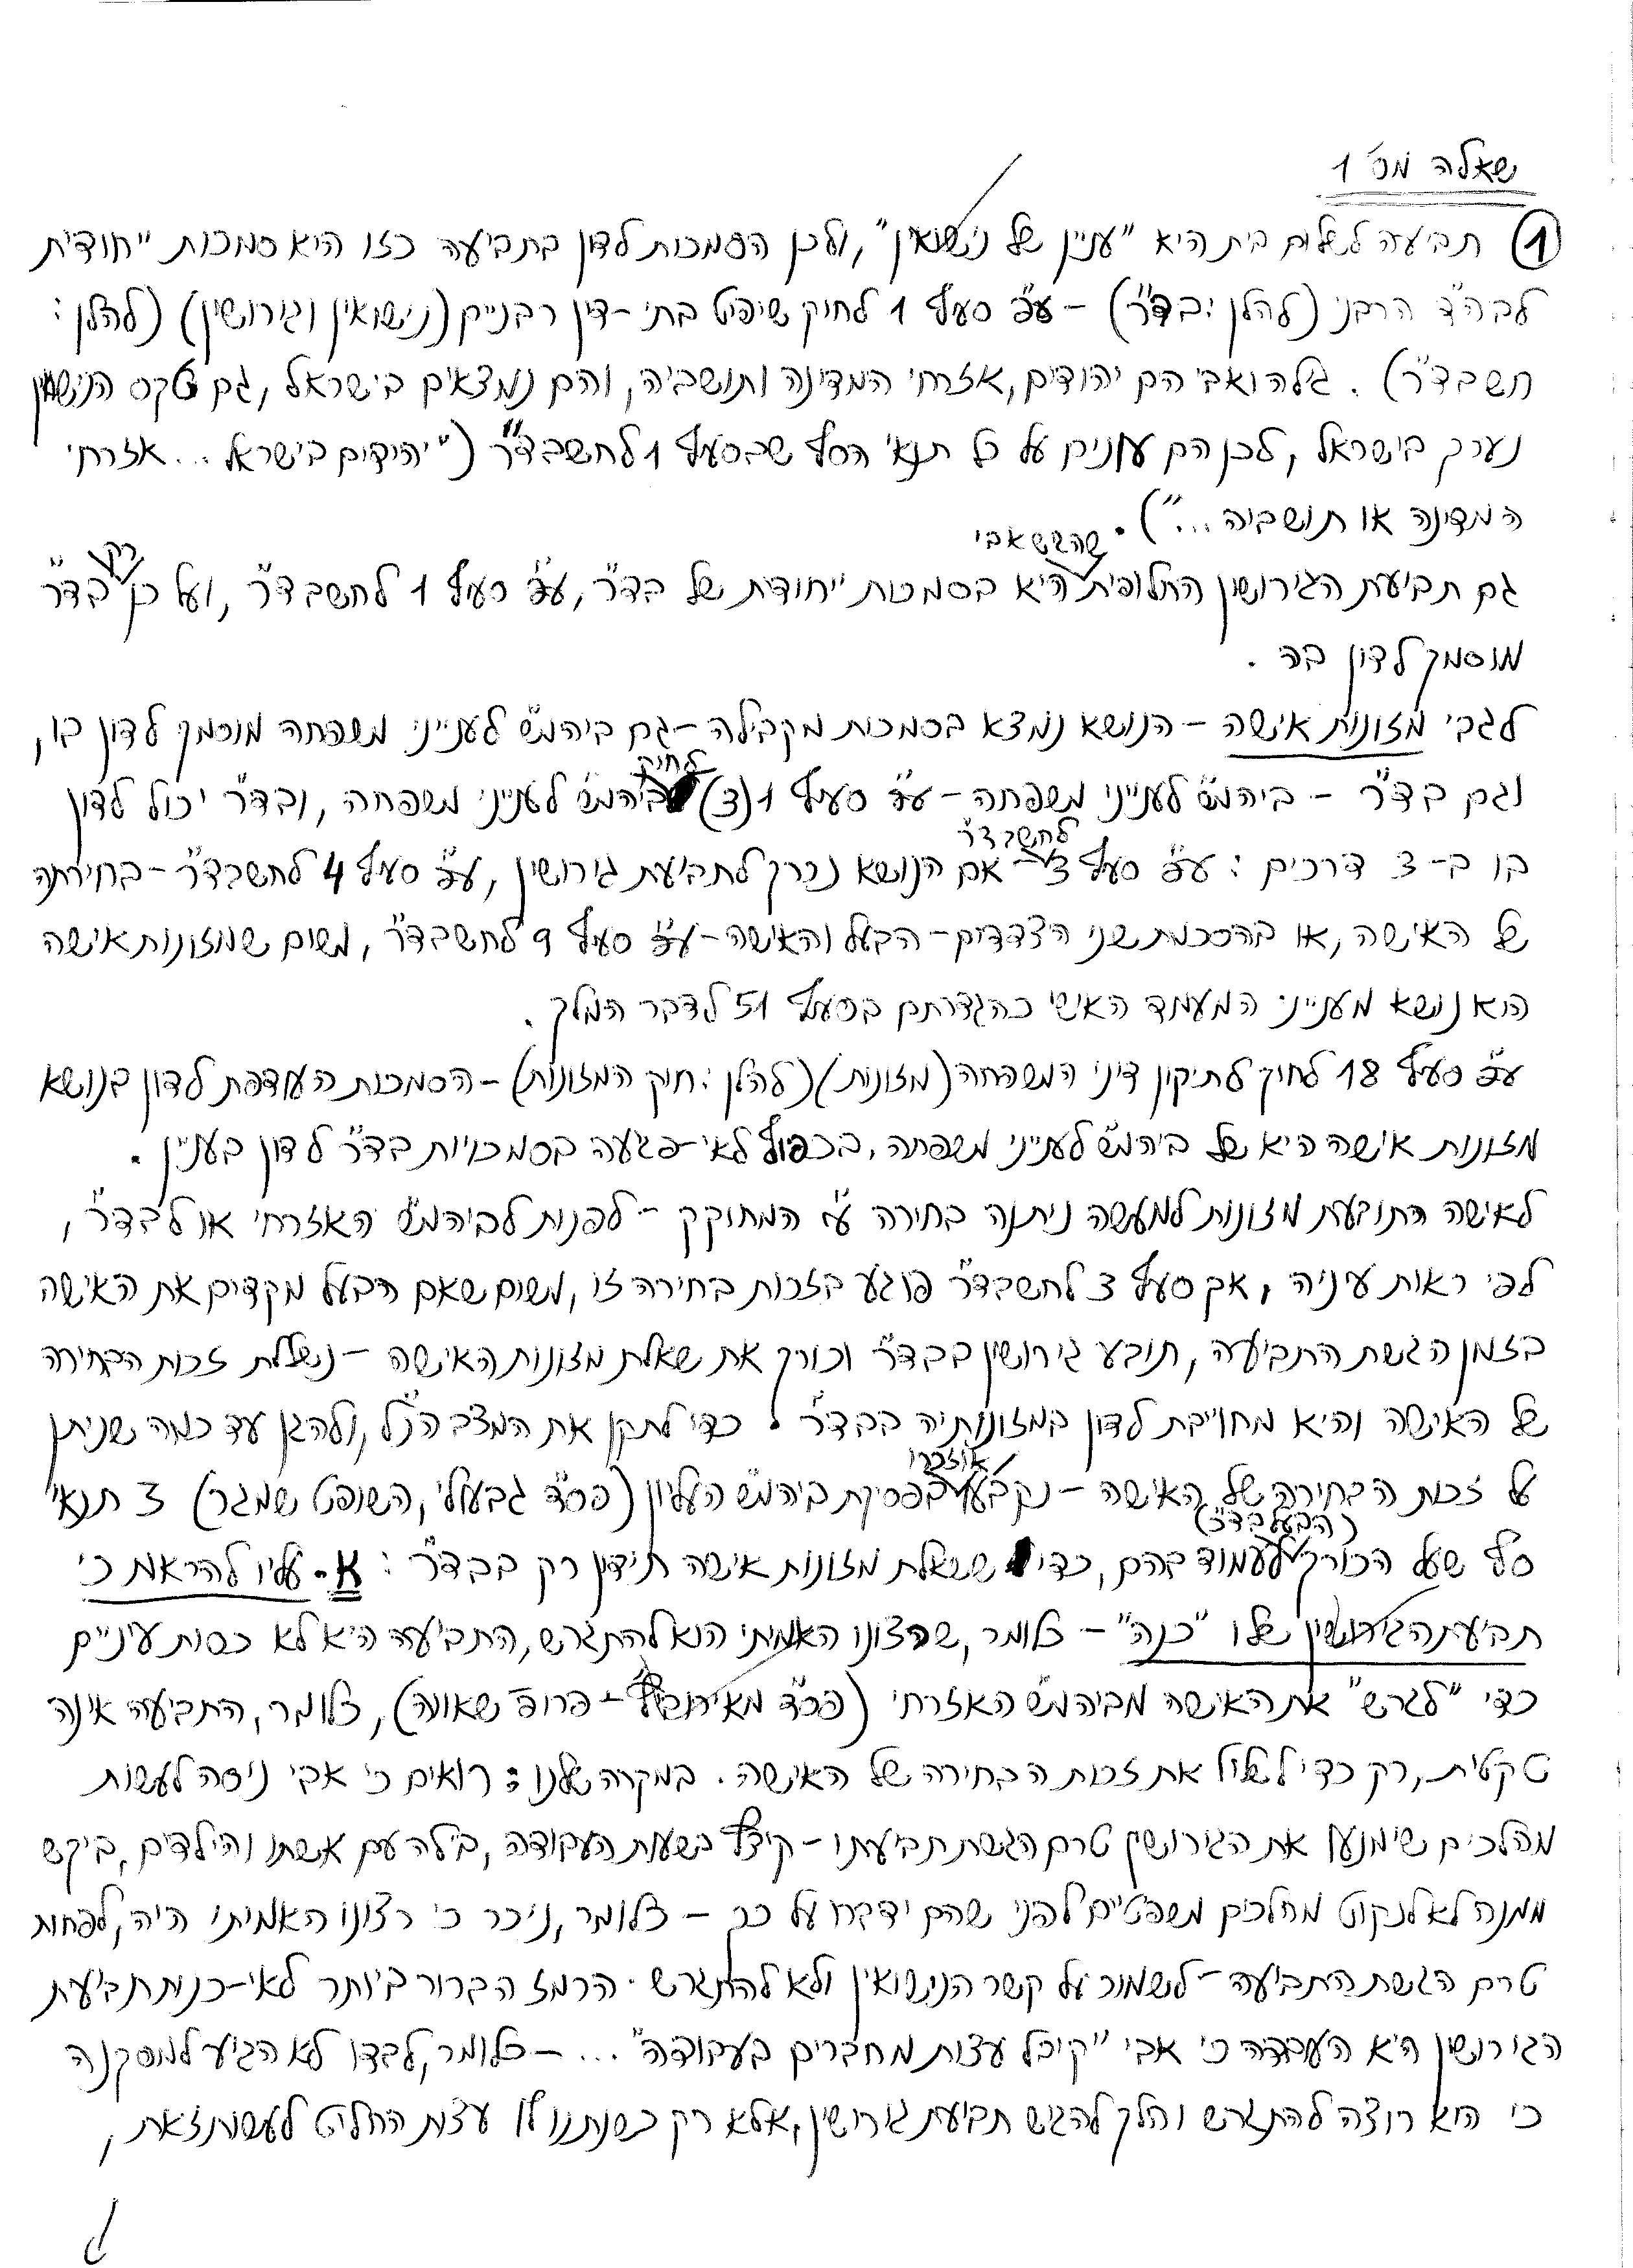 שאלה מס' 1
① תביעה לשלום בית היא "עניין של נישואין", ולכן הסמכות לדון בתביעה כזו היא סמכות ייחודית
לביה"ד הרבני (להלן: בד"ר) – עפ"י סעיף 1 לחוק שיפוט בתי-דין רבניים (נישואין וגירושין) (להלן:
חשבד"ר). גילה ואבי הם יהודים, אזרחי המדינה ותושביה, והם נמצאים בישראל, גם טקס הנישואין
נערך בישראל, לכן הם עונים על כל תנאי הסף שבסעיף 1 לחשבד"ר ("יהודים בישראל... אזרחי
המדינה או תושביה...").
גם תביעת הגירושין החלופית שהגיש אבי היא בסמכות ייחודית של בד"ר, עפ"י סעיף 1 לחשבד"ר, ועל כן רק בד"ר
מוסמך לדון בה.
לגבי מזונות אישה – הנושא נמצא בסמכות מקבילה – גם ביהמ"ש לענייני משפחה מוסמך לדון בו,
וגם בד"ר – ביהמ"ש לענייני משפחה – עפ"י סעיף 1(3) לחוק ביהמ"ש לענייני משפחה, ובד"ר יכול לדון
בו ב-3 דרכים: עפ"י סעיף 3 לחשבד"ר – אם הנושא נכרך לתביעת גירושין, עפ"י סעיף 4 לחשבד"ר – בחירתה
של האישה, או בהסכמת שני הצדדים – הבעל והאישה – עפ"י סעיף 9 לחשבד"ר, משום שמזונות אישה
הוא נושא מענייני המעמד האישי כהגדרתם בסעיף 51 לדבר המלך.
עפ"י סעיף 18 לחוק לתיקון דיני המשפחה (מזונות) (להלן: חוק המזונות) – הסמכות העודפת לדון בנושא
מזונות אישה היא של ביהמ"ש לענייני משפחה, בכפוף לאי-פגיעה בסמכויות בד"ר לדון בעניין.
לאישה התובעת מזונות למעשה ניתנה בחירה ע"י המחוקק – לפנות לביהמ"ש האזרחי או לבד"ר,
לפי ראות עיניה, אך סעיף 3 לחשבד"ר פוגע בזכות בחירה זו, משום שאם הבעל מקדים את האישה
בזמן הגשת התביעה, תובע גירושין בבד"ר וכורך את שאלת מזונות האישה – נשללת זכות הבחירה
של האישה והיא מחוייבת לדון במזונותיה בבד"ר. כדי לתקן את המצב הנ"ל, ולהגן עד כמה שניתן
על זכות הבחירה של האישה – נקבעו אוזכרו בפסיקת ביהמ"ש העליון (פס"ד גבעולי, השופט שמגר) 3 תנאי
סף שעל הכורך (הבעל בד"כ) לעמוד בהם, כדי ששאלת מזונות אישה תידון רק בבד"ר: א. עליו להראות כי
תביעת הגירושין שלו "כנה" – כלומר, שרצונו האמיתי הוא להתגרש, התביעה היא לא כסות עיניים
כדי "לגרש" את האישה מביהמ"ש האזרחי (פס"ד מאירוביץ – פרופ' שאווה), כלומר, התביעה אינה
טקטית, רק כדי לשלול את זכות הבחירה של האישה. במקרה שלנו: רואים כי אבי ניסה לעשות
מהלכים שימנעו את הגירושין טרם הגשת תביעתו – קיצץ בשעות העבודה, בילה עם אשתו והילדים, ביקש
ממנה לא לנקוט מהלכים משפטיים לפני שהם ידברו על כך – כלומר, ניכר כי רצונו האמיתי היה, לפחות
טרם הגשת התביעה – לשמור על קשר הנישואין ולא להתגרש. הרמז הברור ביותר לאי-כנות תביעת
הגירושין היא העובדה כי אבי "קיבל עצות מחברים בעבודה"... – כלומר, לבדו לא הגיע למסקנה
כי הוא רוצה להתגרש והלך להגיש תביעת גירושין, אלא רק כשנתנו לו עצות החליט לעשות זאת,